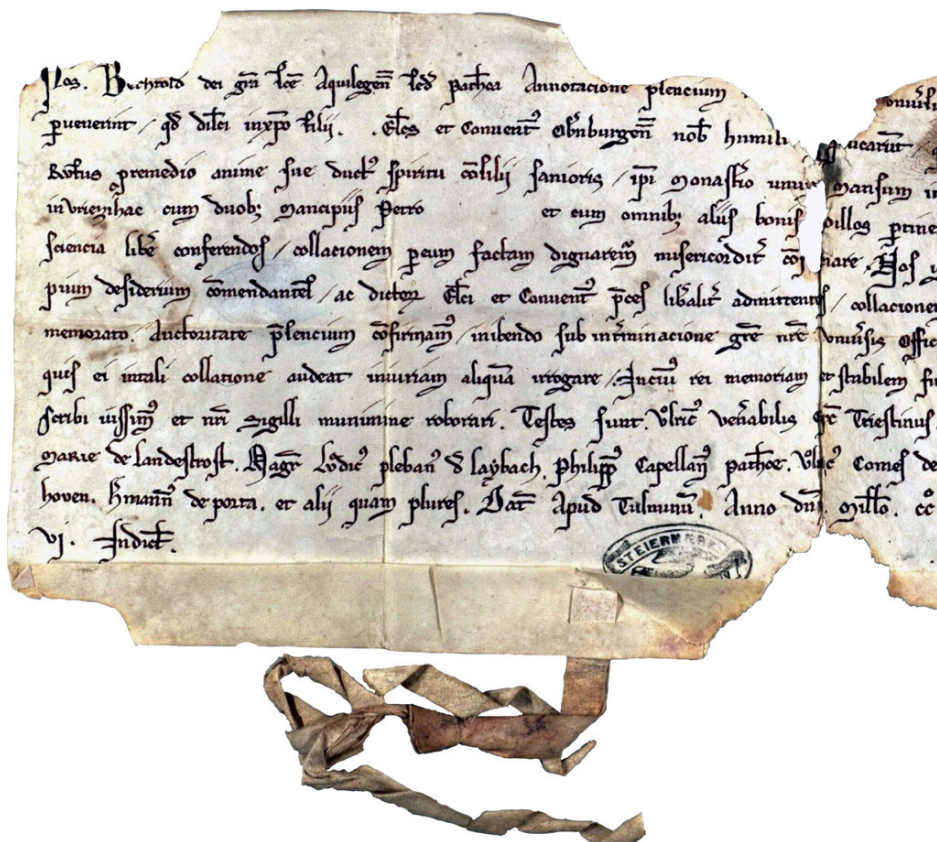 Nos. Bechtold dei gr̄a sc̄e Aquilegeñ sed̄ pat͛ha Annotacione p̄sencium
peruenerint / qd̄ dil̄ci inxp̄o filii. et Conuent⁹ Ob̄nburgeñ nob̄ humili ucarūt
Rūfus premedio anime sue duct⁹ spiritu cōsilii sanioris / ip̄i monast̄io unum Mansum in
cum duob⁹ mancipiis Petro et cum omnib⁹ aliis bonis
sciencia lib̄e conferendos / collacionem p eum factam dignarem̄ misericordit̄
pium desiderium cōmendantes / ac dictoꝝ et Conuent⁹ p̄ces lib̄alit̄ admittentes / collacionem
memorato. Auctoritate p̄sencium cōfirmam⁹ / inibendo sub int̄minacione gr̄e nr̄e vniu̅sis Offic
quis ei intali collatione audeat iniuriam aliquā irrogare / Incui⁹ rei memoriam et stabilem
scribi iussim⁹ et nr̄i Sigilli munimine roborari. Testes sunt. Vl̄ric⁹ ven̄abilis Triestinus
Marie de landestrost. Maḡr Lōdic⁹ pleban⁹ d̄ laybach. Philipp⁹ Capellan⁹ pat͛he. Comes de
hoven. h̄mann⁹ de porta. et alii quam plures. Dat̄ Apud Tulmunū. Anno dn̄i Mill̄o. cc̊
VI. Indict̄.
STEIERMÆRK